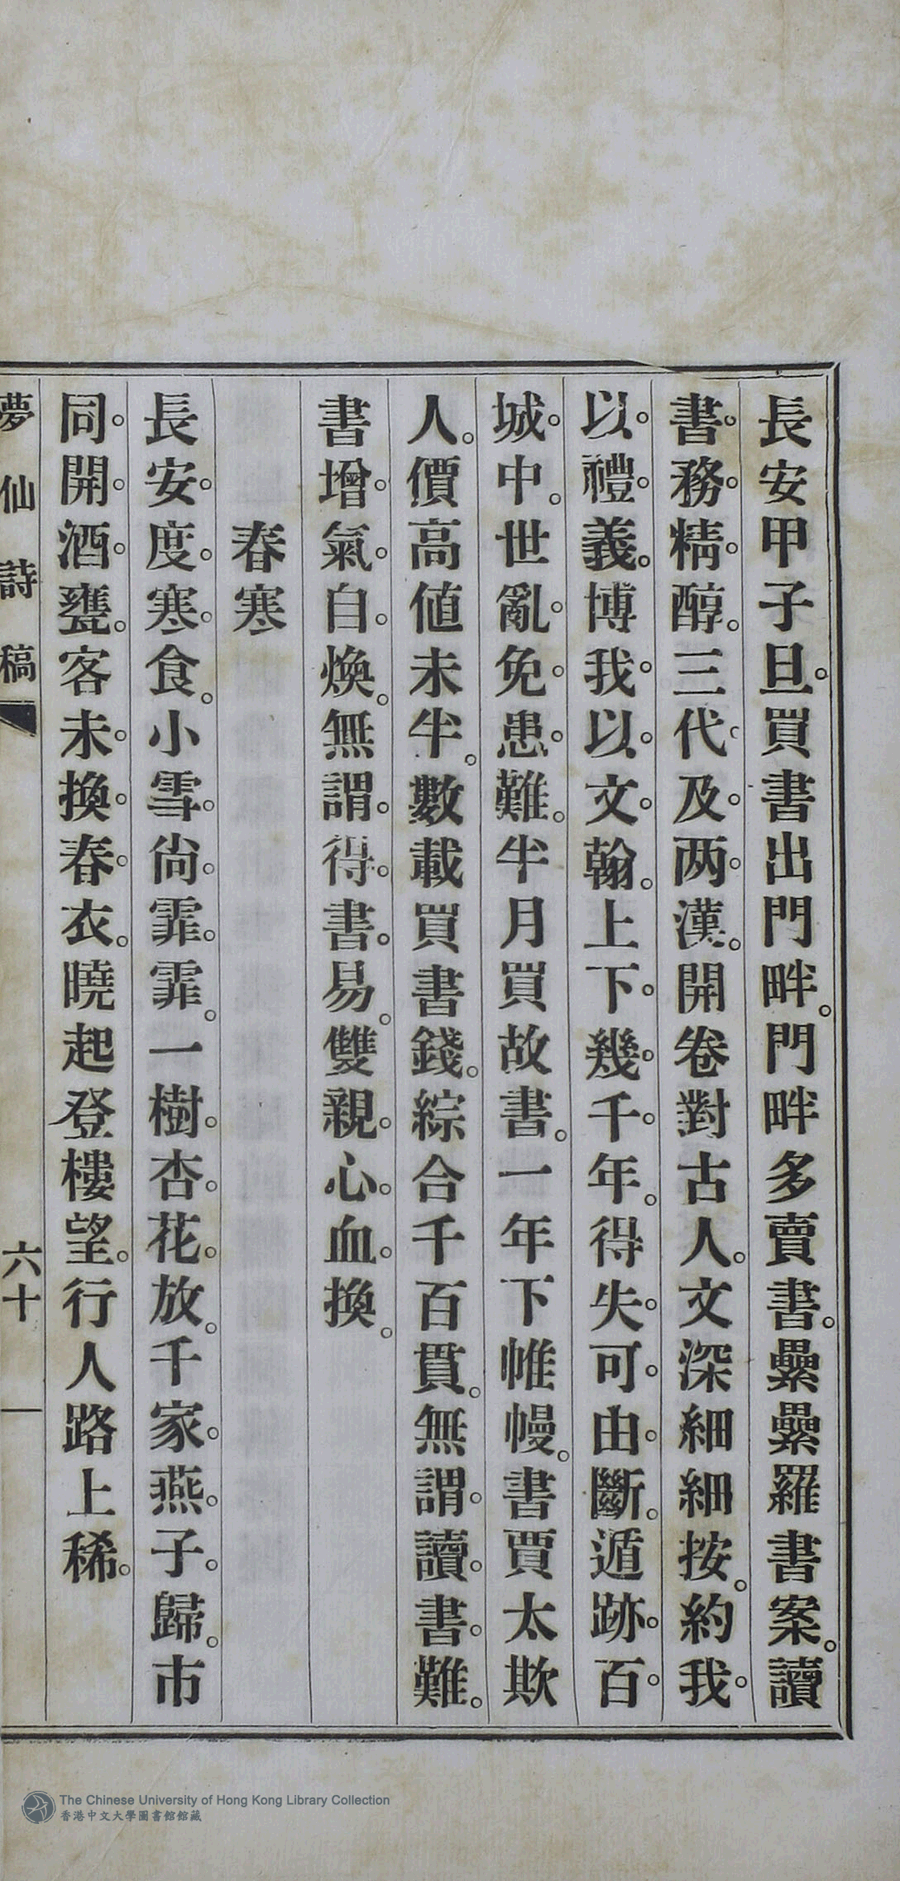 長安甲子旦買書出門畔門畔多賣書纍纍羅書案讀
書務精醇三代及两漢開卷對古人文深細細按約我
以禮義博我以文翰上下幾千年得失可由斷遁跡百
城中世亂免患難半月買故書一年下帷幔書賈太欺
人價高値未半數載買書錢綜合千百貫無謂讀書難
書增氣自煥無謂得書易雙親心血換
春寒
長安度寒食小雪尙霏霏一樹杏花放千家燕子歸市
同開酒甕客未換春衣曉起登樓望行人路上稀
夢仙詩稿
六十
The Chinese University of Hong Kong Library Collection
香港中文大學圖書館館藏